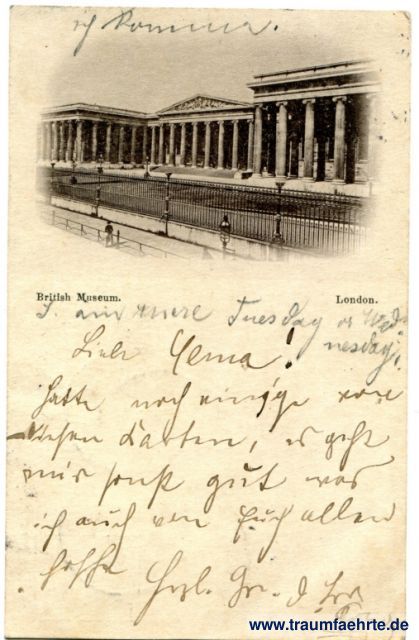 ich komme
British Museum.
London.
Tuesday or Wed-
nesday,
Liebe !
hatte noch einige von
diesen Karten, es geht
mir sonst gut was
ich auch von Euch allen
hoffe Herzl. Gr. d
www.traumfaehrte.de